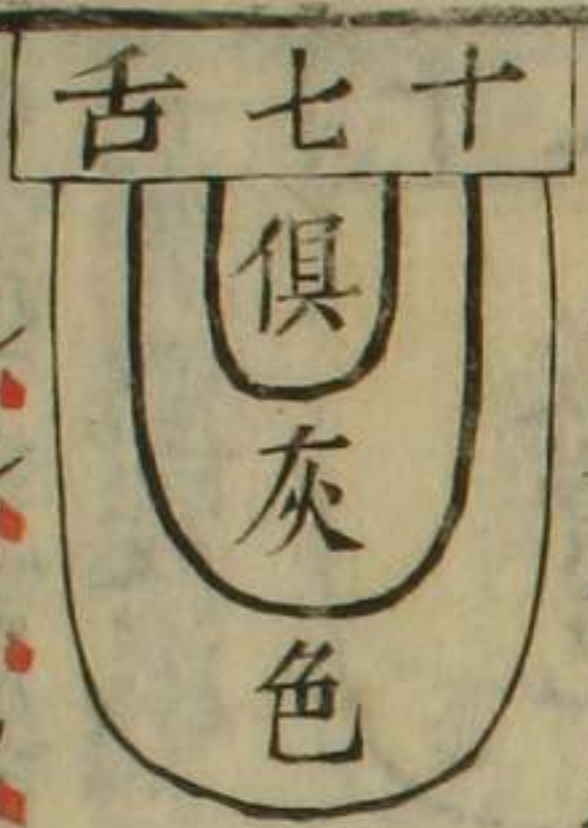 十七舌
俱
灰
色